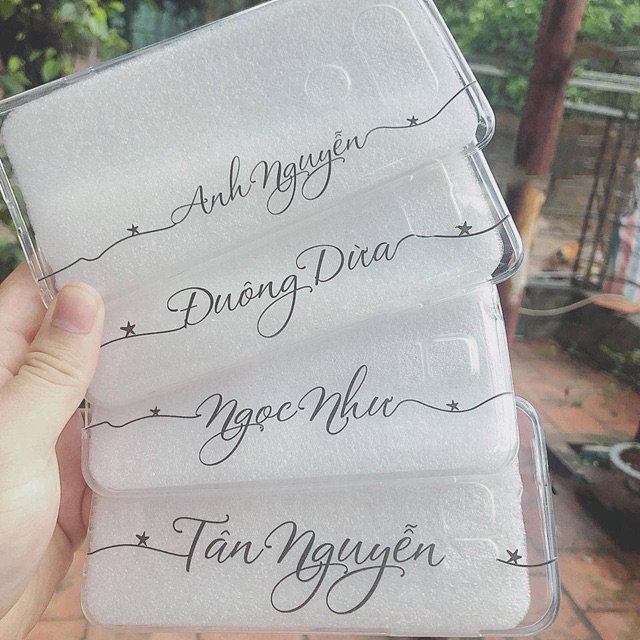 Anh Nguyễn
Đuông Dừa
Ngọc Như
Tân Nguyễn